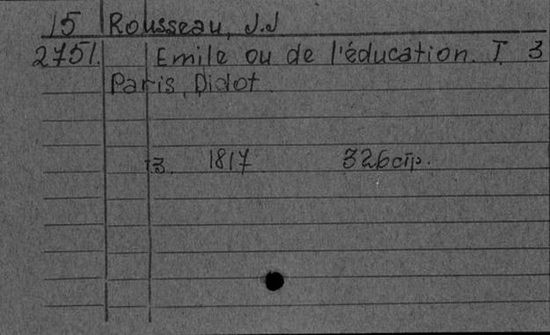 15 Rousseau, J.J
2751. Emile ou de l'éducation. T. 3
Paris, Didot
T3. 1817 326 стр.